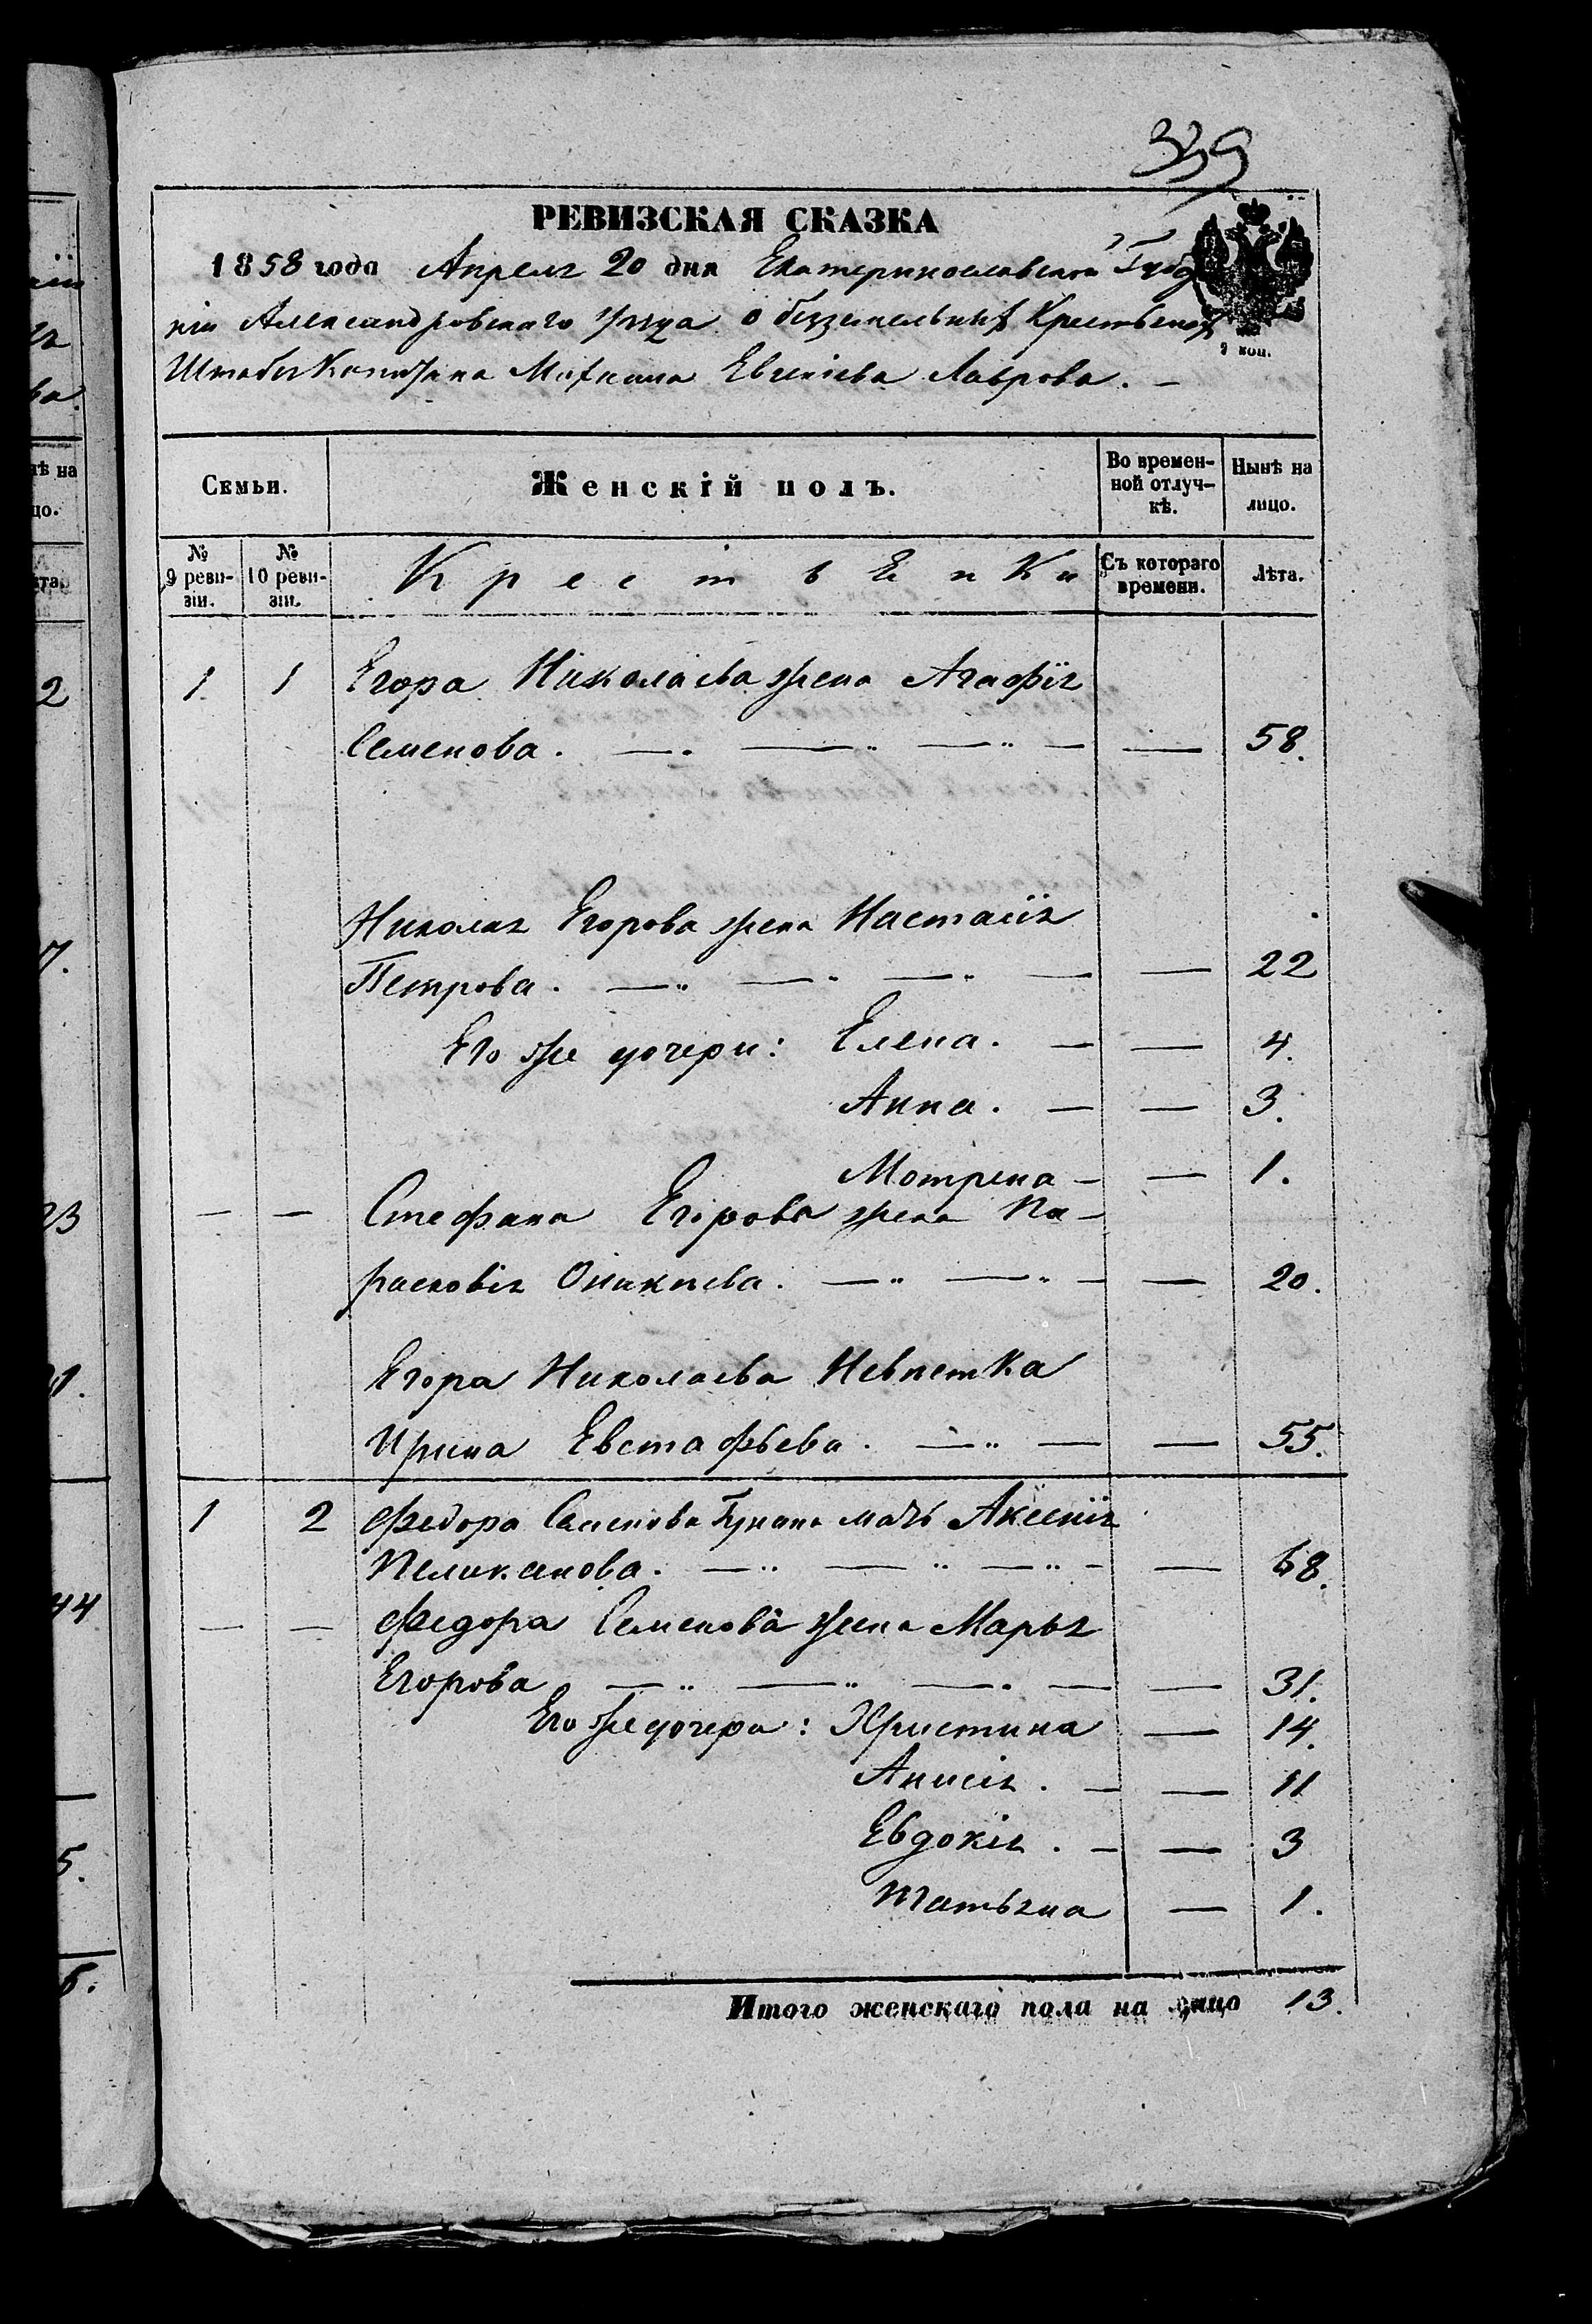 339
РЕВИЗСКАЯ СКАЗКА
1858 года Апреля 20 дня Екатеринославской Губер
ніи Александровскаго уѣзда о безземельныхъ Крестьянахъ
Штабсъ Капитана Михаила Евгеніева Лаврова. —
Семьи.
Женскій полъ.
Во времен-
ной отлуч-
кѣ.
Нынѣ на
лицо.
№ 9 реви-
зіи.
№ 10 реви-
зіи.
Крестьянки
Съ котораго
времени.
Лѣта.
1 1 Егора Николаева жена Агафія
Семенова. — — 58.
Николая Егорова жена Настасія
Петрова. — — 22
Его же дочери: Елена. — — 4.
Анна. — — 3.
Мотрена — — 1.
— — Стефана Егорова жена Па-
расковія Оникиева. — — 20.
Егора Николаева Невѣстка
Ирина Евстафьева. — — 55.
1 2 Федора Семенова мать Аксенія
Пеликанова. — — 68.
— — Федора Семенова жена Марья
Егорова — — 31.
Его же дочери: Христина — 14.
Анисія. — — 11
Евдокія. — — 3
Татьяна — 1.
Итого женскаго пола на лицо 13.
2
7.
23
44
5.
5.